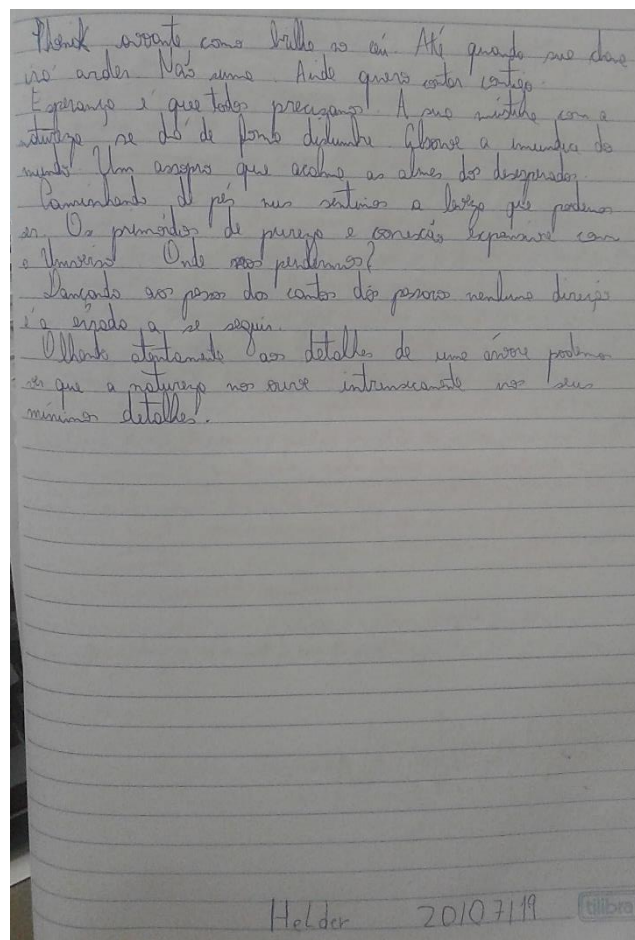 como brilho no céu. Até quando sua
irá arder. Não suma. Ainda quero contar contigo.
Esperança é que todos precizamos. A sua mistica com a
natureza se dá de forma dslumbre. Absorve a imundice do
mundo. Um assopro que acalma as almas dos desesperados.
Caminhando de pés nus sentimos a leveza que podemos
ser. Os primórdios de pureza e conexão expansiva com
o Universo. Onde nos perdemos?
Dançando aos passos dos cantos dos passaros nenhuma direção
é a errada a se seguir.
Olhando atentamente aos detalhes de uma árvore podemos
ver que a natureza nos ouve intrinsicamente nos seus
mínimos detalhes.
Helder 20/07/19
tilibra